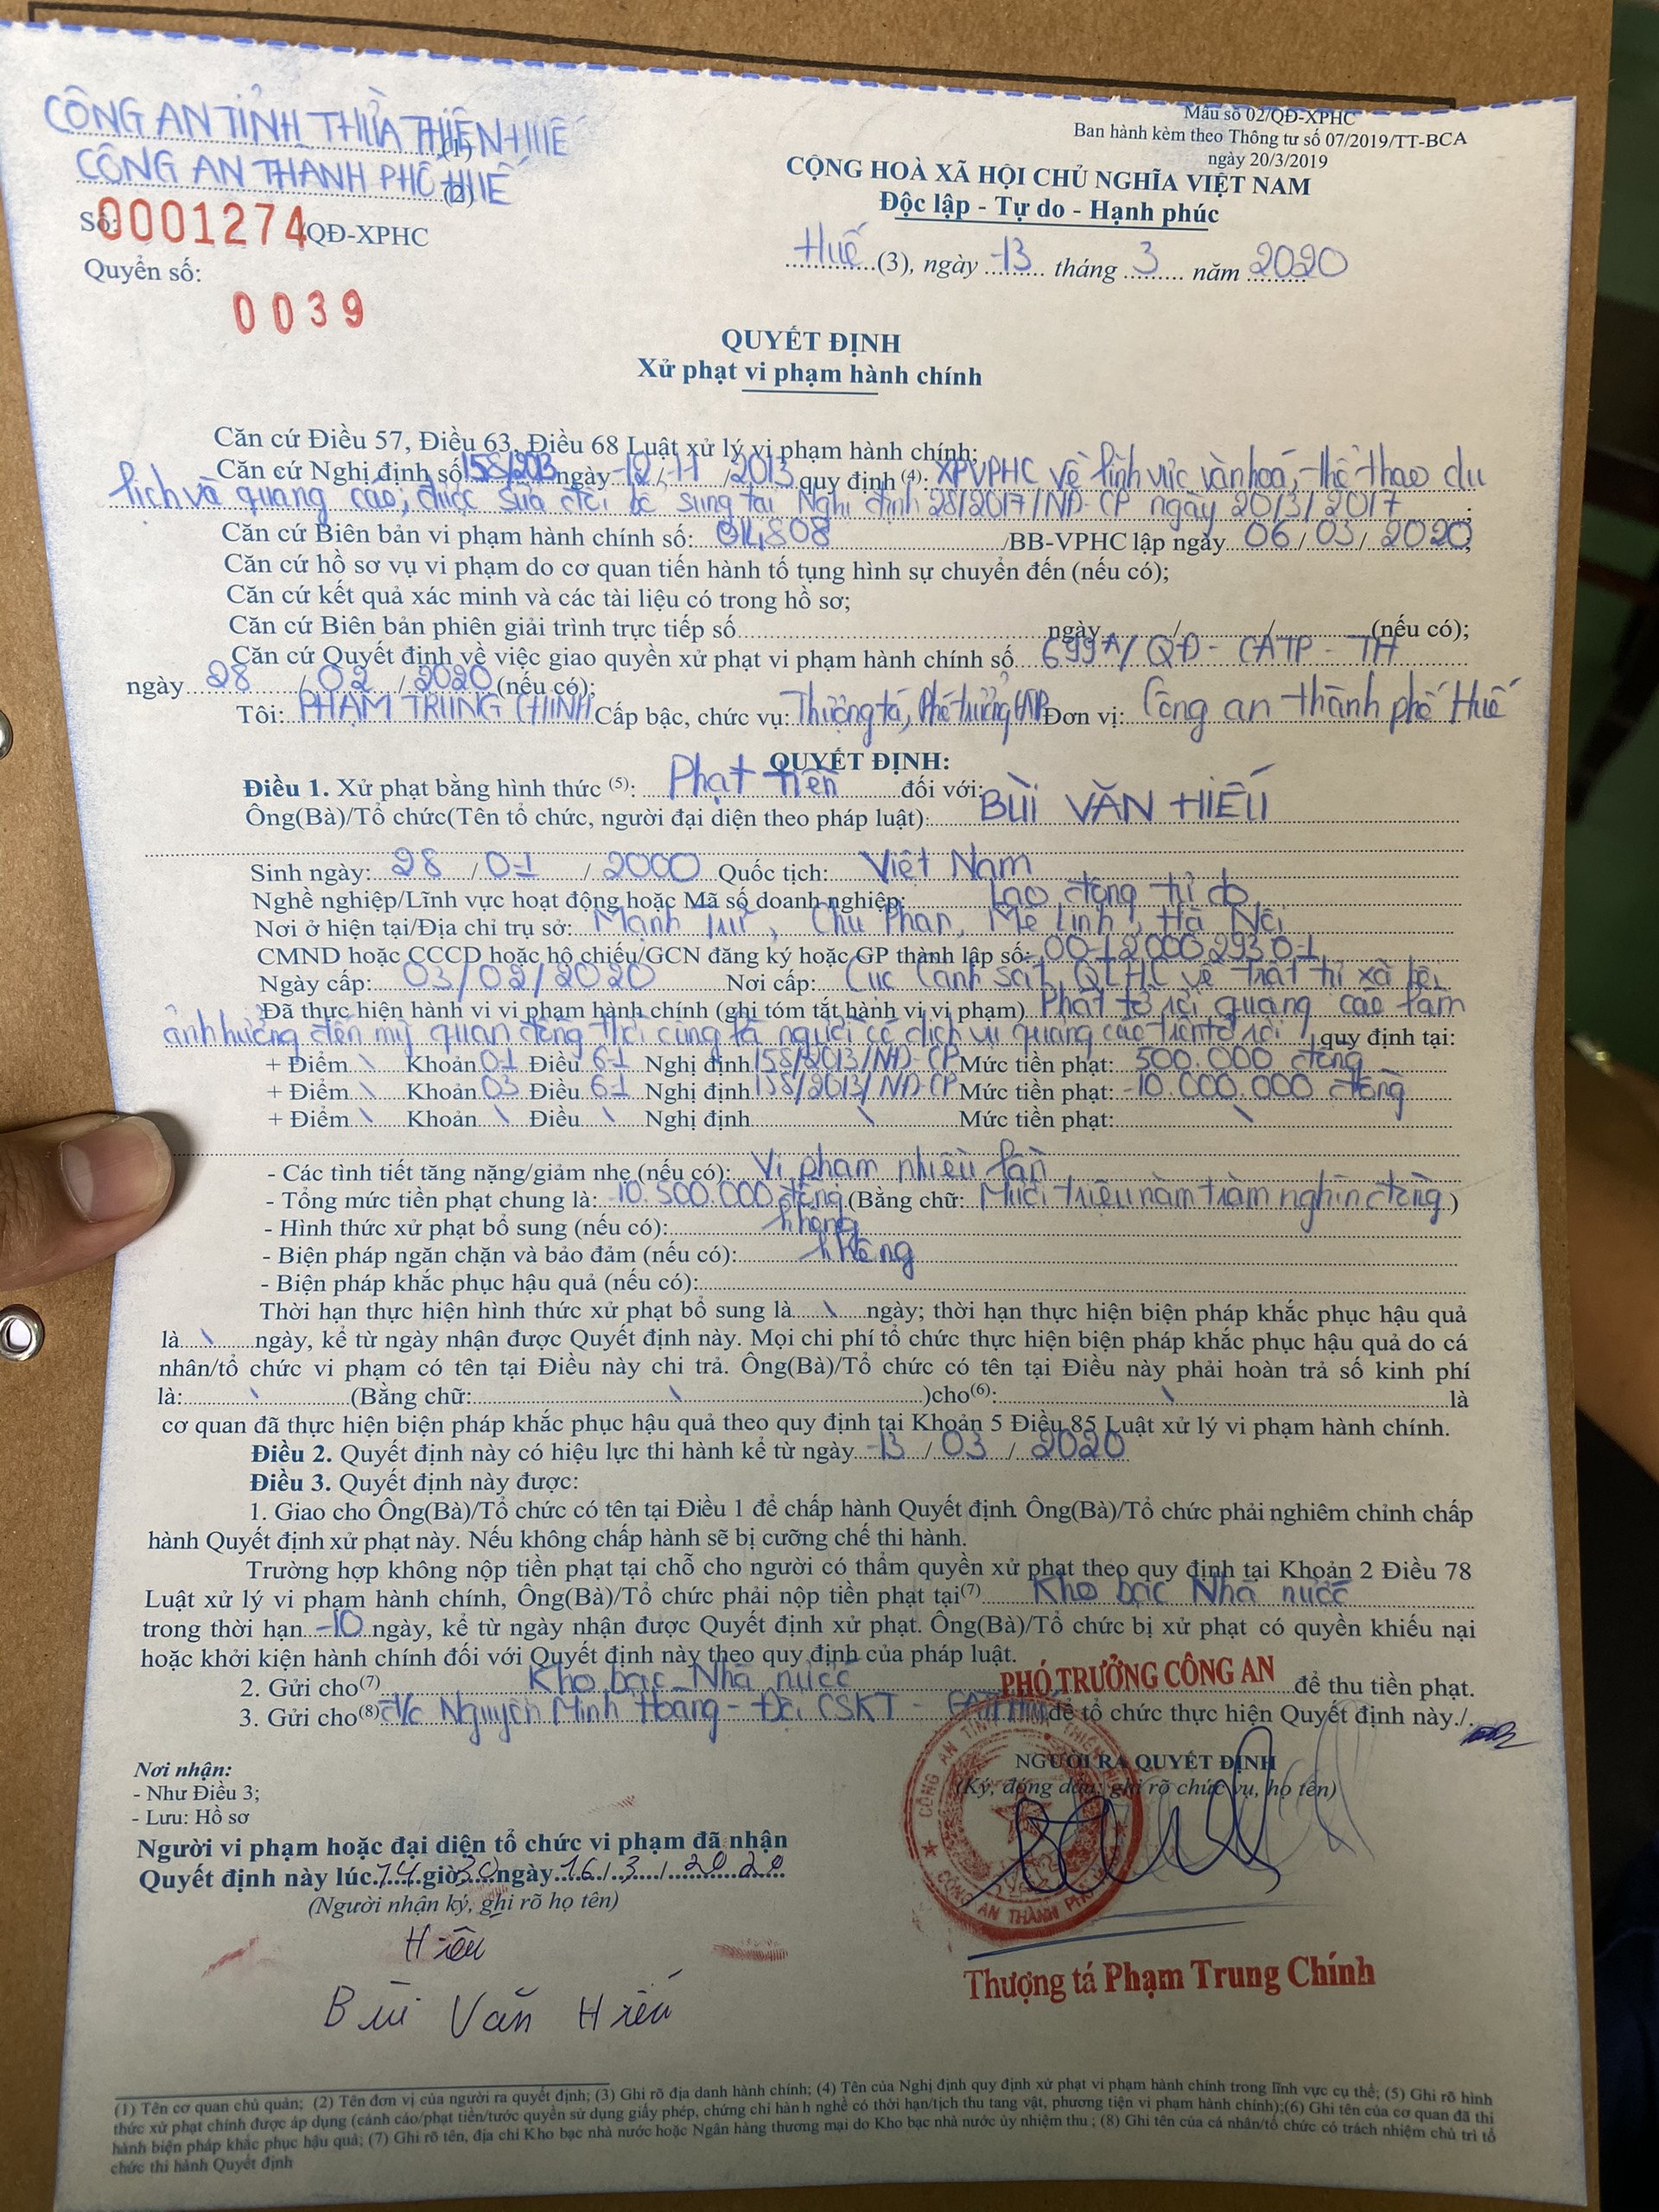 CÔNG AN TỈNH THỪA THIÊN HUẾ (1)
CÔNG AN THÀNH PHỐ HUẾ (2)
Số: 0001274/QĐ-XPHC
Quyển số:
0039
Mẫu số 02/QĐ-XPHC
Ban hành kèm theo Thông tư số 07/2019/TT-BCA
ngày 20/3/2019
CỘNG HOÀ XÃ HỘI CHỦ NGHĨA VIỆT NAM
Độc lập - Tự do - Hạnh phúc
Huế (3), ngày 13 tháng 3 năm 2020
QUYẾT ĐỊNH
Xử phạt vi phạm hành chính
Căn cứ Điều 57, Điều 63, Điều 68 Luật xử lý vi phạm hành chính;
Căn cứ Nghị định số 158/2013 ngày 12/11/2013 quy định (4): XPVPHC về lĩnh vực văn hoá, thể thao du
lịch và quảng cáo; được sửa đổi bổ sung tại Nghị định 28/2017/NĐ-CP ngày 20/3/2017;
Căn cứ Biên bản vi phạm hành chính số: 014808 /BB-VPHC lập ngày 06/03/2020;
Căn cứ hồ sơ vụ vi phạm do cơ quan tiến hành tố tụng hình sự chuyển đến (nếu có);
Căn cứ kết quả xác minh và các tài liệu có trong hồ sơ;
Căn cứ Biên bản phiên giải trình trực tiếp số ngày / / (nếu có);
Căn cứ Quyết định về việc giao quyền xử phạt vi phạm hành chính số 699A/QĐ-CATP-TH
ngày 28/02/2020 (nếu có);
Tôi: PHẠM TRUNG CHÍNH Cấp bậc, chức vụ: Thượng tá, Phó trưởng CATP Đơn vị: Công an thành phố Huế
QUYẾT ĐỊNH:
Điều 1. Xử phạt bằng hình thức (5): Phạt tiền đối với:
Ông(Bà)/Tổ chức(Tên tổ chức, người đại diện theo pháp luật): BÙI VĂN HIẾU
Sinh ngày: 28/01/2000 Quốc tịch: Việt Nam
Nghề nghiệp/Lĩnh vực hoạt động hoặc Mã số doanh nghiệp: Lao động tự do
Nơi ở hiện tại/Địa chỉ trụ sở: Mạnh Trữ, Chu Phan, Mê Linh, Hà Nội
CMND hoặc CCCD hoặc hộ chiếu/GCN đăng ký hoặc GP thành lập số: 001200029301
Ngày cấp: 03/02/2020 Nơi cấp: Cục Cảnh sát QLHC về trật tự xã hội
Đã thực hiện hành vi vi phạm hành chính (ghi tóm tắt hành vi vi phạm) Phát tờ rơi quảng cáo làm
ảnh hưởng đến mỹ quan đồng thời cũng là người có dịch vụ quảng cáo trên tờ rơi, quy định tại:
+ Điểm \ Khoản 01 Điều 61 Nghị định 158/2013/NĐ-CP Mức tiền phạt: 500.000 đồng
+ Điểm \ Khoản 03 Điều 61 Nghị định 158/2013/NĐ-CP Mức tiền phạt: 10.000.000 đồng
+ Điểm \ Khoản \ Điều \ Nghị định \ Mức tiền phạt: \
- Các tình tiết tăng nặng/giảm nhẹ (nếu có): Vi phạm nhiều lần
- Tổng mức tiền phạt chung là: 10.500.000 đồng (Bằng chữ: Mười triệu năm trăm nghìn đồng)
- Hình thức xử phạt bổ sung (nếu có): không
- Biện pháp ngăn chặn và bảo đảm (nếu có): không
- Biện pháp khắc phục hậu quả (nếu có):
Thời hạn thực hiện hình thức xử phạt bổ sung là \ ngày; thời hạn thực hiện biện pháp khắc phục hậu quả
là \ ngày, kể từ ngày nhận được Quyết định này. Mọi chi phí tổ chức thực hiện biện pháp khắc phục hậu quả do cá
nhân/tổ chức vi phạm có tên tại Điều này chi trả. Ông(Bà)/Tổ chức có tên tại Điều này phải hoàn trả số kinh phí
là: \ (Bằng chữ: \ )cho(6): \ là
cơ quan đã thực hiện biện pháp khắc phục hậu quả theo quy định tại Khoản 5 Điều 85 Luật xử lý vi phạm hành chính.
Điều 2. Quyết định này có hiệu lực thi hành kể từ ngày 13/03/2020
Điều 3. Quyết định này được:
1. Giao cho Ông(Bà)/Tổ chức có tên tại Điều 1 để chấp hành Quyết định. Ông(Bà)/Tổ chức phải nghiêm chỉnh chấp
hành Quyết định xử phạt này. Nếu không chấp hành sẽ bị cưỡng chế thi hành.
Trường hợp không nộp tiền phạt tại chỗ cho người có thẩm quyền xử phạt theo quy định tại Khoản 2 Điều 78
Luật xử lý vi phạm hành chính, Ông(Bà)/Tổ chức phải nộp tiền phạt tại(7) Kho bạc Nhà nước
trong thời hạn 10 ngày, kể từ ngày nhận được Quyết định xử phạt. Ông(Bà)/Tổ chức bị xử phạt có quyền khiếu nại
hoặc khởi kiện hành chính đối với Quyết định này theo quy định của pháp luật.
2. Gửi cho(7) Kho bạc Nhà nước để thu tiền phạt.
3. Gửi cho(8) Đ/c Nguyễn Minh Hoàng - Đội CSKT - CATP Huế để tổ chức thực hiện Quyết định này./.
PHÓ TRƯỞNG CÔNG AN
NGƯỜI RA QUYẾT ĐỊNH
(Ký, đóng dấu; ghi rõ chức vụ, họ tên)
CÔNG AN TỈNH THỪA THIÊN
CÔNG AN THÀNH PHỐ
Thượng tá Phạm Trung Chính
Nơi nhận:
- Như Điều 3;
- Lưu: Hồ sơ
Người vi phạm hoặc đại diện tổ chức vi phạm đã nhận
Quyết định này lúc 14 giờ 30 ngày 16/3/2020
(Người nhận ký, ghi rõ họ tên)
Hiếu
Bùi Văn Hiếu
(1) Tên cơ quan chủ quản; (2) Tên đơn vị của người ra quyết định; (3) Ghi rõ địa danh hành chính; (4) Tên của Nghị định quy định xử phạt vi phạm hành chính trong lĩnh vực cụ thể; (5) Ghi rõ hình
thức xử phạt chính được áp dụng (cảnh cáo/phạt tiền/tước quyền sử dụng giấy phép, chứng chỉ hành nghề có thời hạn/tịch thu tang vật, phương tiện vi phạm hành chính);(6) Ghi tên của cơ quan đã thi
hành biện pháp khắc phục hậu quả; (7) Ghi rõ tên, địa chỉ Kho bạc nhà nước hoặc Ngân hàng thương mại do Kho bạc nhà nước ủy nhiệm thu; (8) Ghi tên của cá nhân/tổ chức có trách nhiệm chủ trì tổ
chức thi hành Quyết định